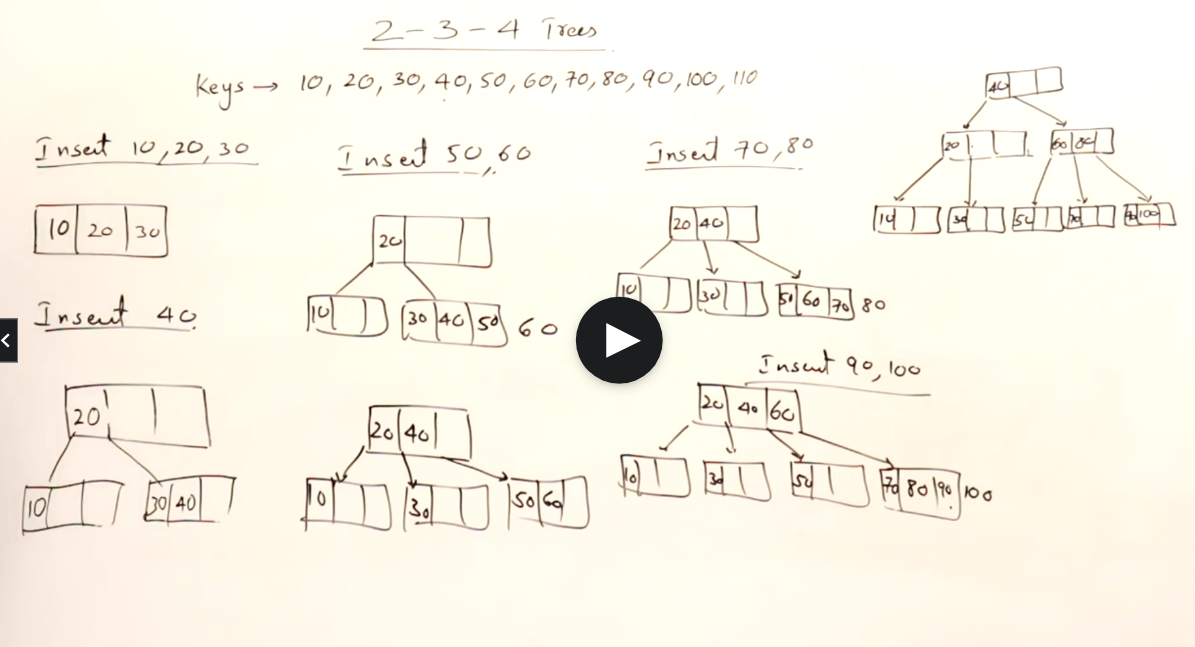 2-3-4 Trees
Keys → 10, 20, 30, 40, 50, 60, 70, 80, 90, 100, 110
Insert 10, 20, 30
10 20 30
Insert 40
20
10
30 40
Insert 50, 60
20
10
30 40 50 60
20 40
10
30
50 60
Insert 70, 80
20 40
10
30
50 60 70 80
Insert 90, 100
20 40 60
10
30
50
70 80 90 100
40
20
60 80
10
30
50
70
90 100